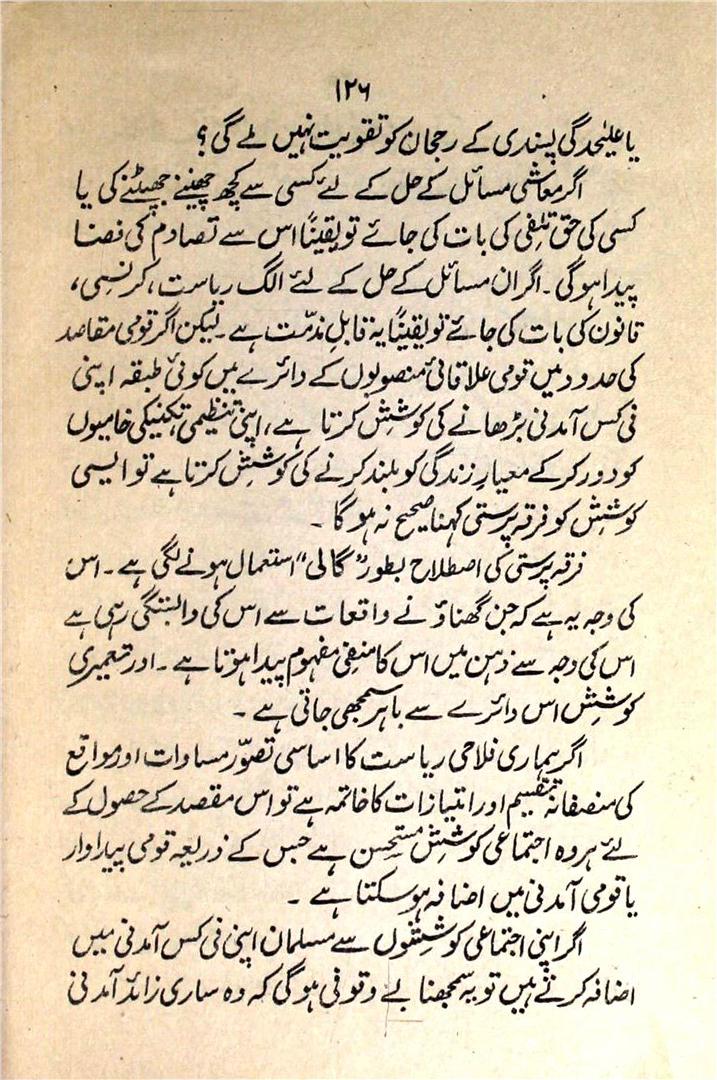 ۱۲۶
یا علیٰحدگی پسندی کے رجحان کو تقویت نہیں ملے گی؟
اگر معاشی مسائل کے حل کے لئے کسی سے کچھ چھیننے جھپٹنے کی یا
کسی کی حق تلفی کی بات کی جائے تو یقیناً اس سے تصادم کی فضا
پیدا ہوگی۔ اگر ان مسائل کے حل کے لئے الگ ریاست، کرنسی،
قانون کی بات کی جائے تو یقیناً یہ قابلِ مذمّت ہے۔ لیکن اگر قومی مقاصد
کی حدود میں قومی علاقائی منصوبوں کے دائرے میں کوئی طبقہ اپنی
فی کس آمدنی بڑھانے کی کوشش کرتا ہے، اپنی تنظیمی تکنیکی خامیوں
کو دور کر کے معیارِ زندگی کو بلند کرنے کی کوشش کرتا ہے تو ایسی
کوشش کو فرقہ پرستی کہنا صحیح نہ ہو گا۔
فرقہ پرستی کی اصطلاح بطور "گالی" استعمال ہونے لگی ہے۔ اس
کی وجہ یہ ہے کہ جن گھناؤنے واقعات سے اس کی وابستگی رہی ہے
اس کی وجہ سے ذہن میں اس کا منفی مفہوم پیدا ہوتا ہے۔ اور تعمیری
کوشش اس دائرے سے باہر سمجھی جاتی ہے۔
اگر ہماری فلاحی ریاست کا اساسی تصوّر مساوات اور مواقع
کی منصفانہ تقسیم اور امتیازات کا خاتمہ ہے تو اس مقصد کے حصول کے
لئے ہر وہ اجتماعی کوشش مستحسن ہے جس کے ذریعہ قومی پیداوار
یا قومی آمدنی میں اضافہ ہو سکتا ہے۔
اگر اپنی اجتماعی کوششوں سے مسلمان اپنی فی کس آمدنی میں
اضافہ کرتے ہیں تو یہ سمجھنا بے وقوفی ہوگی کہ وہ ساری زائد آمدنی